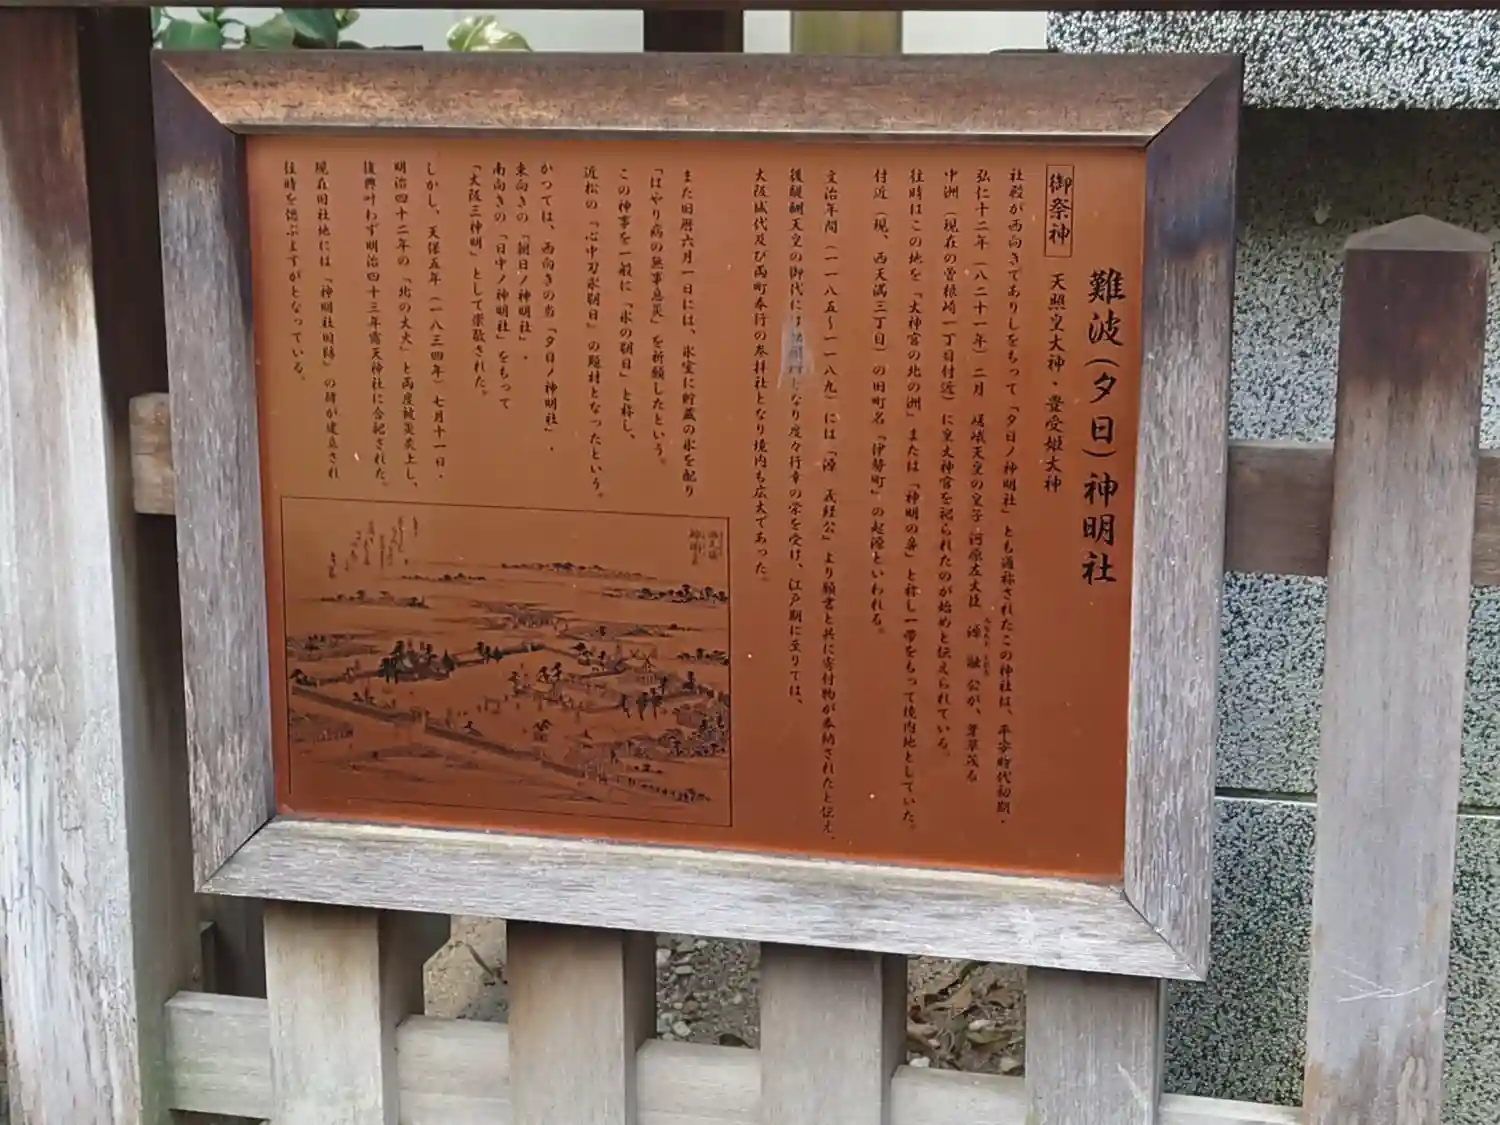 難波(夕日)神明社
御祭神
天照皇大神・豊受姫大神
社殿が西向きでありしをもって「夕日ノ神明社」とも通称されたこの神社は、平安時代初期・
弘仁十二年(八二十一年)二月 嵯峨天皇の皇子 河原左大臣 源 融 公が、葦草茂る
みなもと とおる
中洲(現在の曽根崎一丁目付近)に皇大神宮を祀られたのが始めと伝えられている。
往時はこの地を「大神宮の北の洲」または「神明の鼻」と称し一帯をもって境内地としていた。
付近(現、西天満三丁目)の旧町名「伊勢町」の起源といわれる。
文治年間(一一八五〜一一八九)には「源 義経公」より願書と共に寄付物が奉納されたと伝え、
後醍醐天皇の御代には となり度々行幸の栄を受け、江戸期に至りては、
大阪城代及び両町奉行の参拝社となり境内も広大であった。
また旧暦六月一日には、氷室に貯蔵の氷を配り
「はやり病の無事息災」を祈願したという。
この神事を一般に「氷の朔日」と称し、
近松の「心中刃氷朔日」の題材となったという。
かつては、西向きの当「夕日ノ神明社」、
東向きの「朝日ノ神明社」・
南向きの「日中ノ神明社」をもって
「大阪三神明」として崇敬された。
しかし、天保五年(一八三四年)七月十一日・
明治四十二年の「北の大火」と両度被災炎上し、
復興叶わず明治四十三年露天神社に合祀された。
現在旧社地には「神明社旧跡」の碑が建立され
往時を偲ぶよすがとなっている。